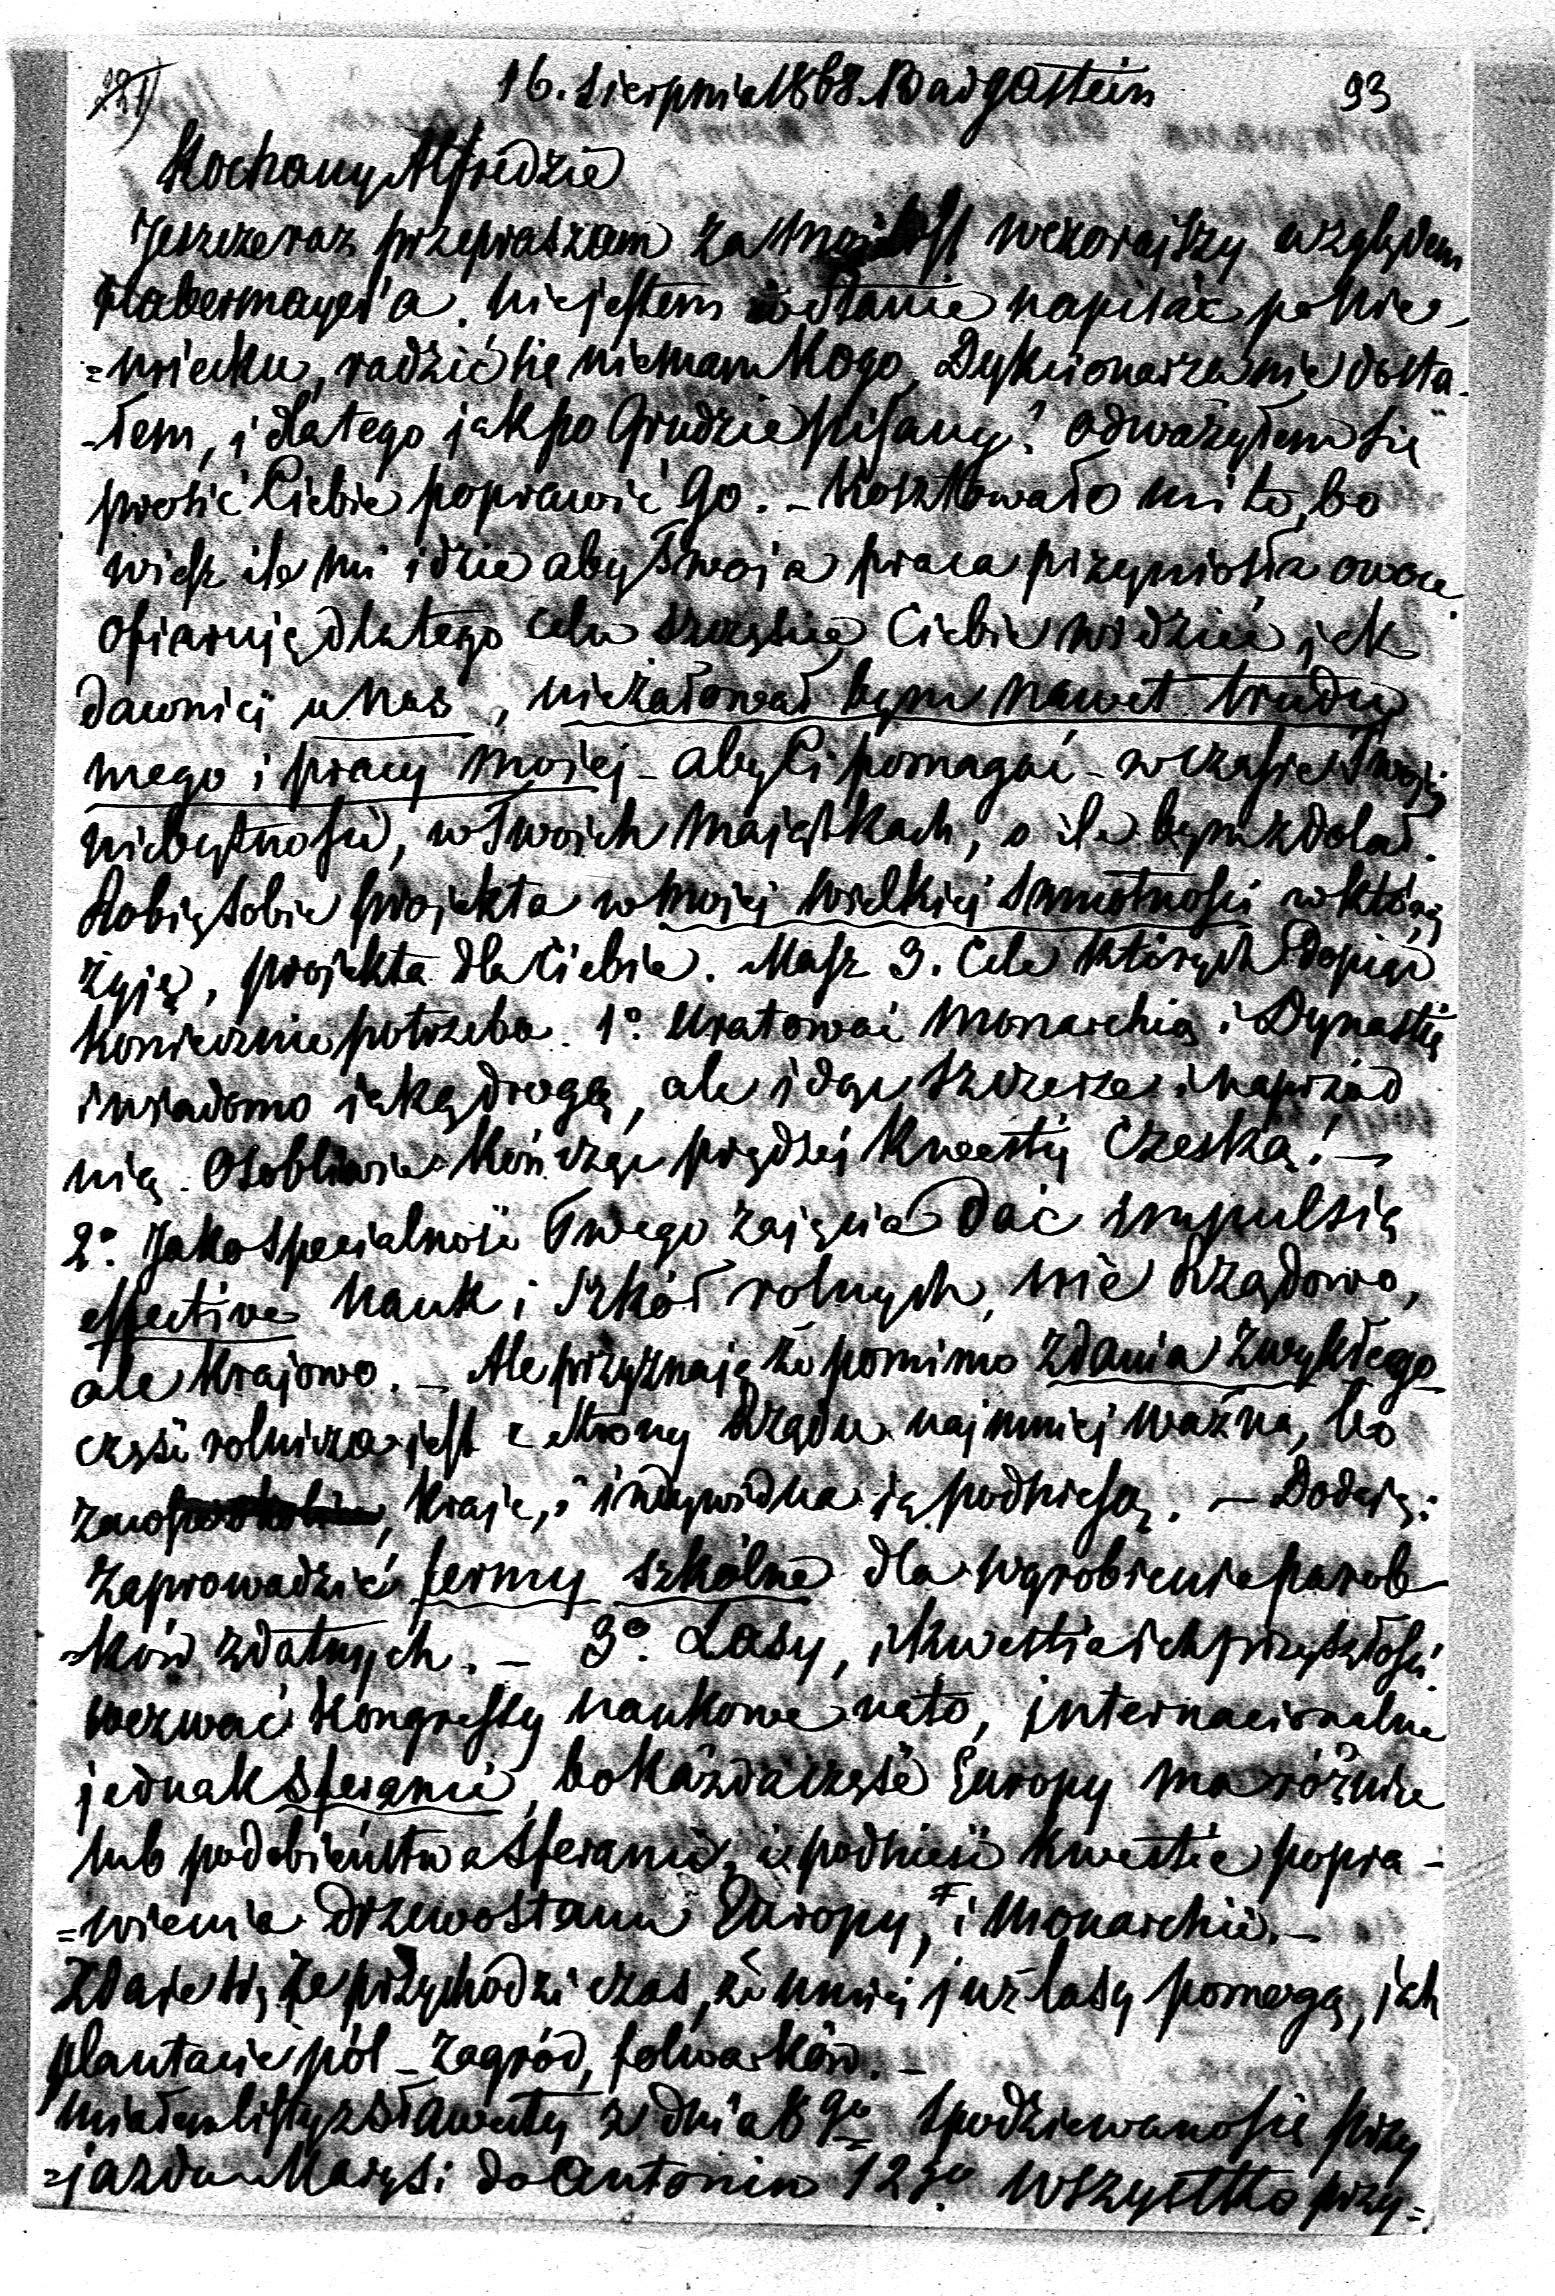 16. Sierpnia 1868. Badgastein 93
Kochany Alfredzie
Jeszcze raz przepraszam za mój list wczorajszy względem
Habermayer'a. nie jestem w stanie napisać po Nie-
=miecku, radzić się niemam Kogo, Dykcionarza nie dosta-
-łem, i dlatego jak po Grudzie pisany? odważyłem się
prosić Ciebie poprawić Go. – Kosztowało mi to, bo
wiesz ile mi idzie aby Twoja praca przyniosła owoce.
Ofiaruję dla tego celu szczęście Ciebie widzieć jak
dawniej u nas, nieżałował bym nawet trudu
mego i pracy mojej – aby Ci pomagać – w czasie Twojej
niebytności, w Twoich majątkach, o ile bym zdołał.
Robię sobie projekta w mojej wielkiej samotności w której
żyję, projekta dla Ciebie. Masz 3. Cele których dopiąć
koniecznie potrzeba. 1º. Uratować monarchią i Dynastię
i wiadomo jaką drogą, ale idąc szczerze i naprzód
nią. Osobliwie kończąc prędzej kwestię Czeską! –
2º. Jako specialność Twego zajęcia Dać impulsią
effective nauk i szkół rolnych, nie Rządowo,
ale Krajowo. – Ale przyznaję że pomimo zdania zwykłego
część rolnicza jest z strony Rządu najmniej ważna, bo
Kraje, i indywidua ją podniesą. – Dodaję:
Zaprowadzić fermy szkólne dla wyrobienia parob-
-ków zdatnych. – 3º. Lasy, i kwestia ich przyszłości
wezwać Kongressy naukowe na to, internacionalne
jednak sferami, bo każda część Europy ma różnice
lub podobieństwa sferami, i podnieść kwestie popra-
=wienia drzewostanu Europy, i Monarchii. –
Zdaje się że przychodzi czas, że mniej już lasy pomogą, jak
plantacie pól – zagród, folwarków. –
Miałem listy z Sławuty z dnia 8 go spodziewano się przy
=jazdu Marysi do Antonin 12 go. Wszystko przy=